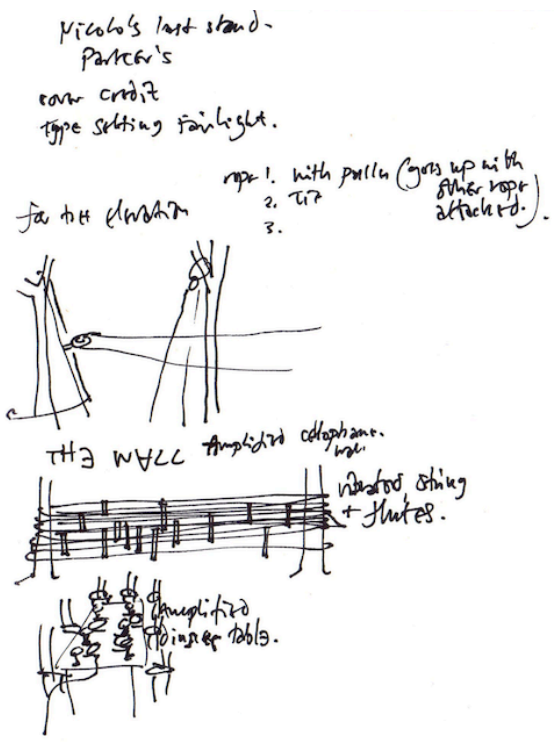 Nicolo's last stand.
Parker's
cover credit
type setting Fairlight.
rope 1. with pulley (goes up with
other rope
attached.)
2. Tie
3.
for tree elevation
THE WALL Amplified celophane.
wall.
vibrated string
+ flutes.
Amplified
dinner table.